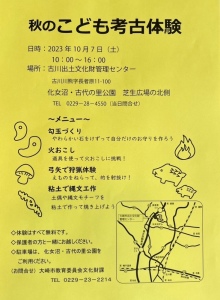 秋のこども考古体験
日時：2023年10月7日（土）
10：00～16：00
場所：古川出土文化財管理センター
古川川熊字長者原11-100
化女沼・古代の里公園 芝生広場の北側
TEL 0229-28-4550（当日問合せ）
～メニュー～
勾玉づくり
やわらかい石をけずって自分だけのお守りを作ろう
火おこし
道具を使って火おこしに挑戦！
弓矢で狩猟体験
えものをねらって、的を射抜け！
粘土で縄文工作
土偶や縄文モチーフを
粘土で作って焼き上げよう
◇体験はすべて無料です。
◇保護者の方と一緒にお越しください。
◇駐車場は、化女沼・古代の里公園を
ご利用ください。
（お問合せ）大崎市教育委員会文化財課
TEL 0229-23-2214